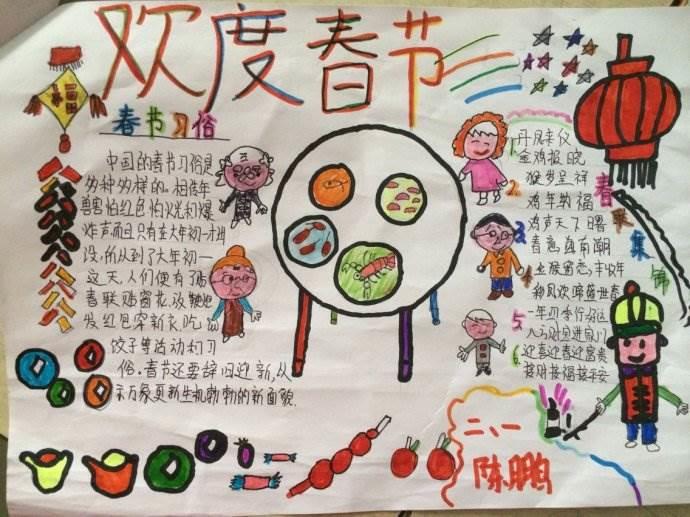 欢度春节
春节习俗
中国的春节习俗是
多种多样的。相传年
兽害怕红色、怕火光和爆
炸声而且只有在大年初一才出
没,所以到了大年初一
这天,人们便有了贴
春联、贴窗花、放鞭炮
发红包、穿新衣、吃
饺子等活动和习
俗。春节还要辞旧迎新,从
万象更新生机勃勃的新面貌.
春联集锦
1.丹凤来仪
金鸡报晓
2.猴岁呈祥
鸡年纳福
3.鸡声天下曙
春意
4.
和风欢
5.一年四季行好运
八方财宝进家门
6.迎喜迎春迎富贵
接财接福接平安
二、一
陈鹏